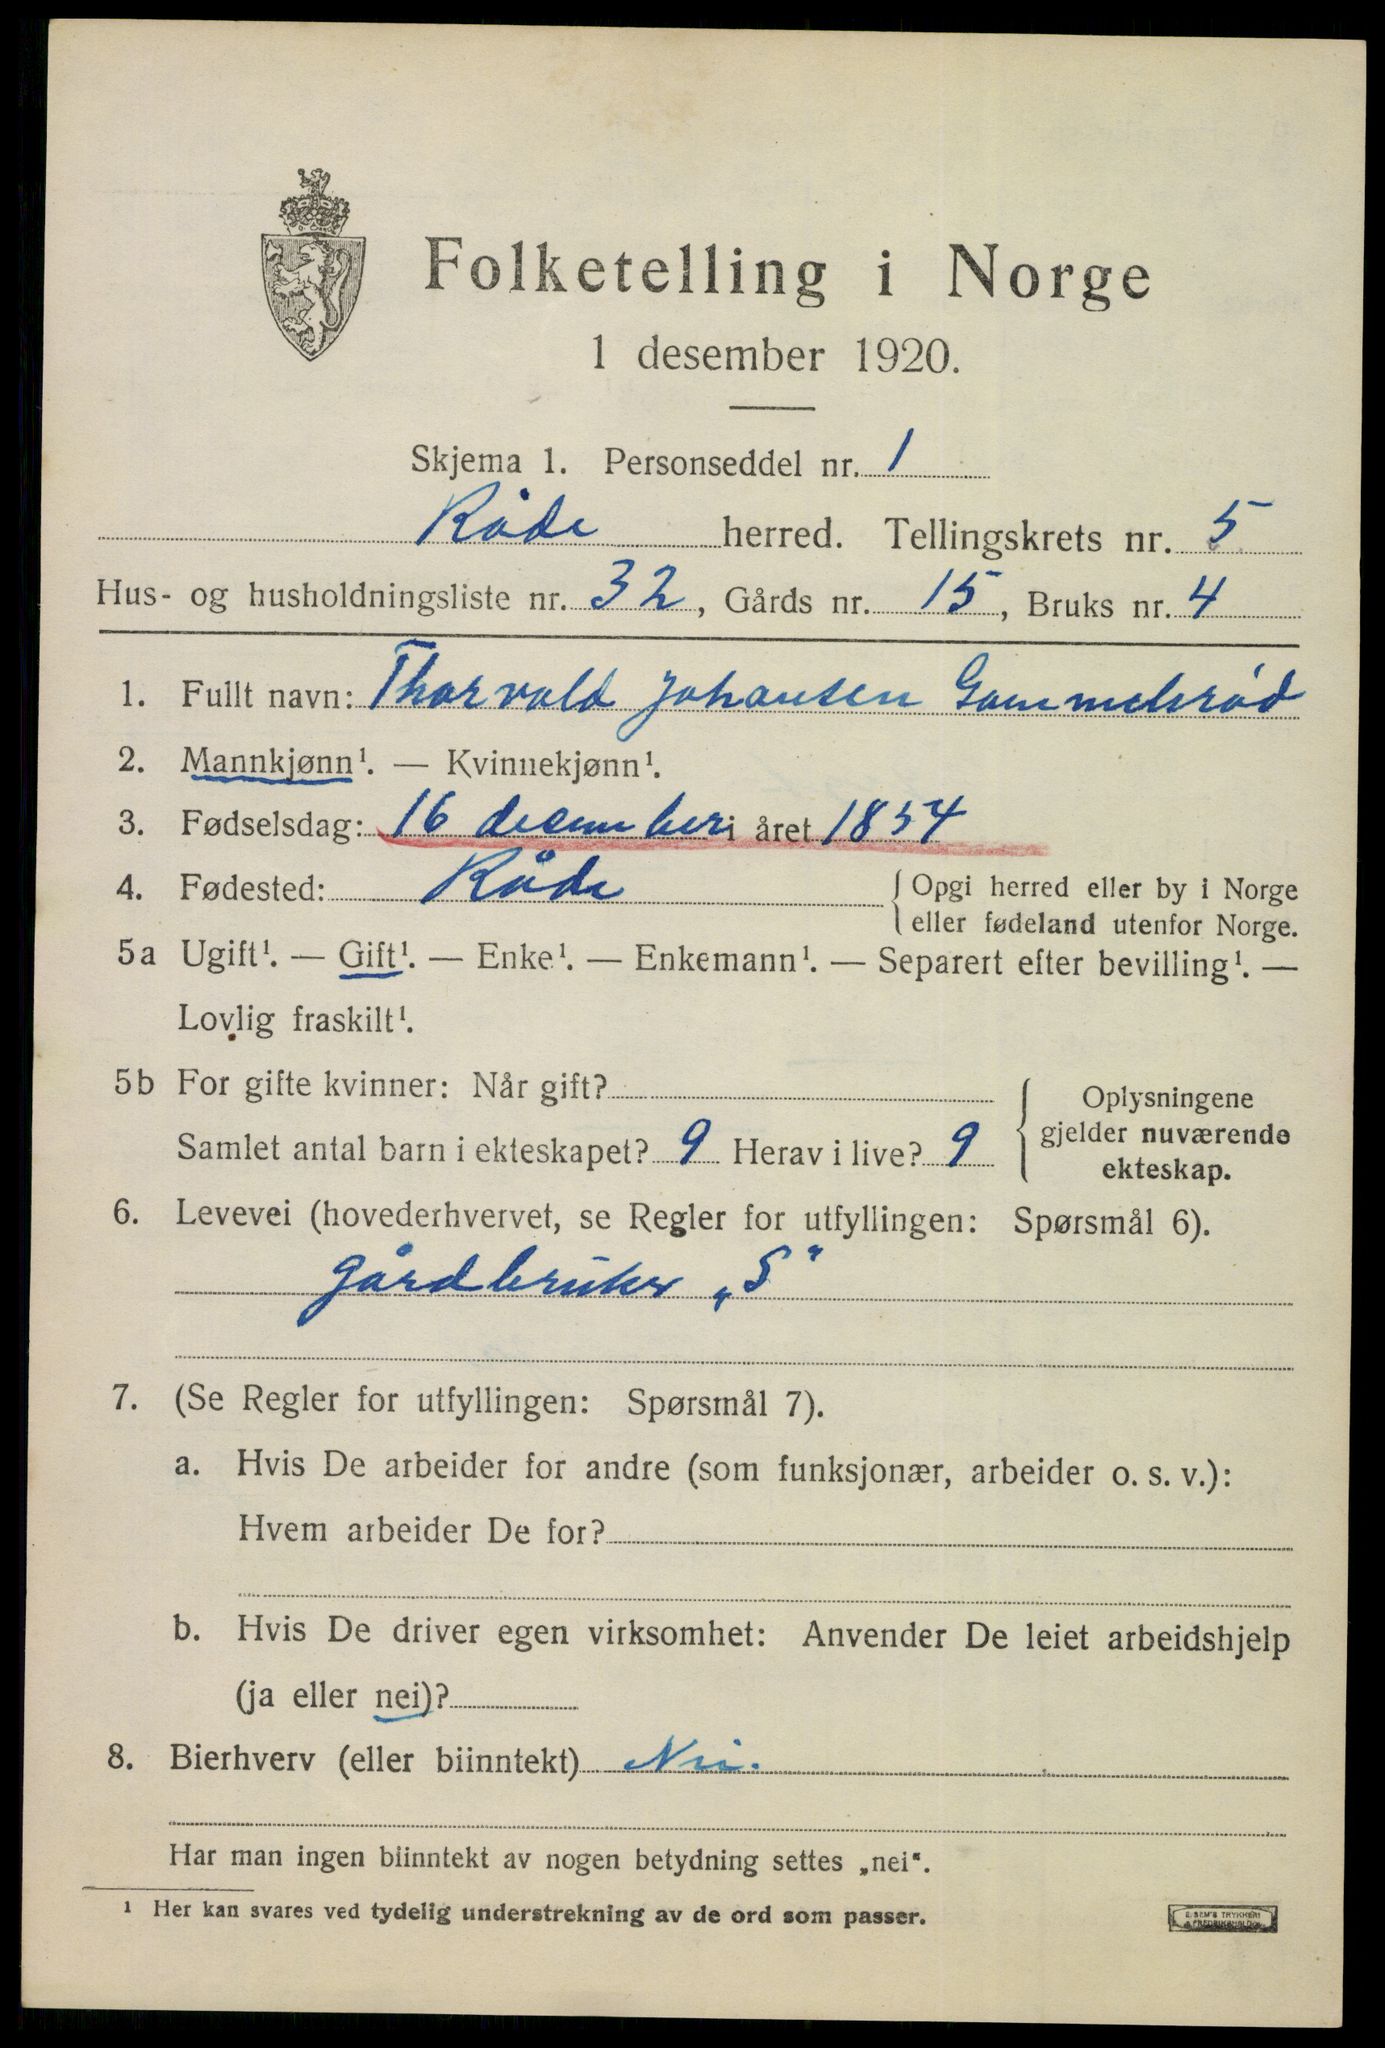 Folketelling i Norge
1 desember 1920.
Skjema 1. Personseddel nr. 1
Råde herred. Tellingskrets nr. 5
Hus- og husholdningsliste nr. 32, Gårds nr. 15, Bruks nr. 4
1. Fullt navn: Thorvald Johansen Gammelsrød
2. Mannkjønn¹. — Kvinnekjønn¹.
3. Fødselsdag: 16 desember i året 1854
4. Fødested: Råde { Opgi herred eller by i Norge
eller fødeland utenfor Norge.
5a Ugift¹. — Gift¹. — Enke¹. — Enkemann¹. — Separert efter bevilling¹. —
Lovlig fraskilt¹.
5b For gifte kvinner: Når gift?
Samlet antal barn i ekteskapet? 9 Herav i live? 9
Oplysningene
gjelder nuværende
ekteskap.
6. Levevei (hovederhvervet, se Regler for utfyllingen: Spørsmål 6).
Gårdbruker „S"
7. (Se Regler for utfyllingen: Spørsmål 7).
a. Hvis De arbeider for andre (som funksjonær, arbeider o. s. v.):
Hvem arbeider De for?
b. Hvis De driver egen virksomhet: Anvender De leiet arbeidshjelp
(ja eller nei)?
8. Bierhverv (eller biinntekt) Nei.
Har man ingen biinntekt av nogen betydning settes „nei".
¹ Her kan svares ved tydelig understrekning av de ord som passer.
E. SEM'S TRYKKERI
FREDRIKSHALD